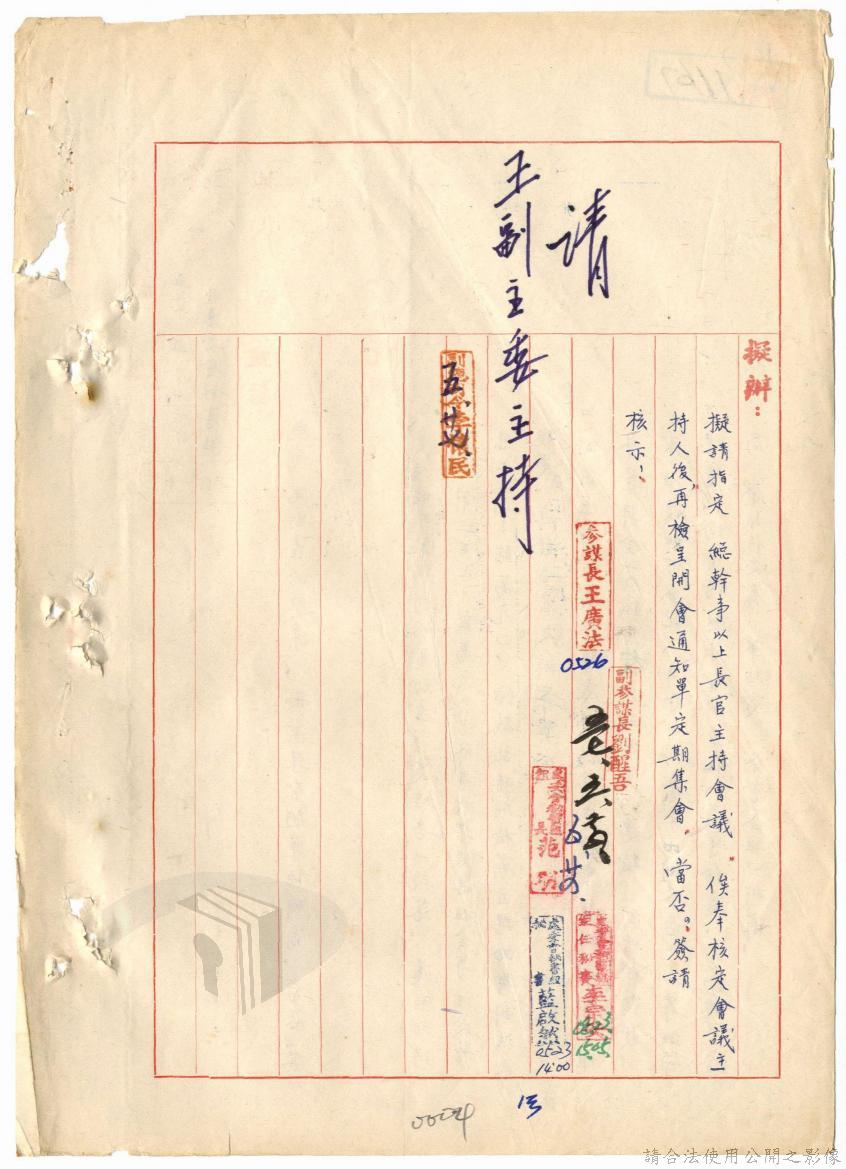 擬辦：
擬請指定　總幹事以上長官主持會議。俟奉核定會議主
持人後，再檢呈開會通知單定期集會。當否。簽請
核示！
請
王副主委主持
參謀長王廣法
0526
副參謀長劉醒吾
0523
1505
藍啟然
0523
14:00
請合法使用公開之影像